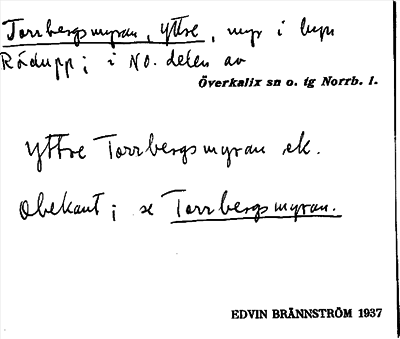 Torrbergsmyran, yttre, myr i byn
Rödupp; i NO. delen av
Överkalix sn o. tg Norrb. l.
Yttre Torrbergsmyran ek.
Obekant; se Torrbergsmyran.
EDVIN BRÄNNSTRÖM 1937